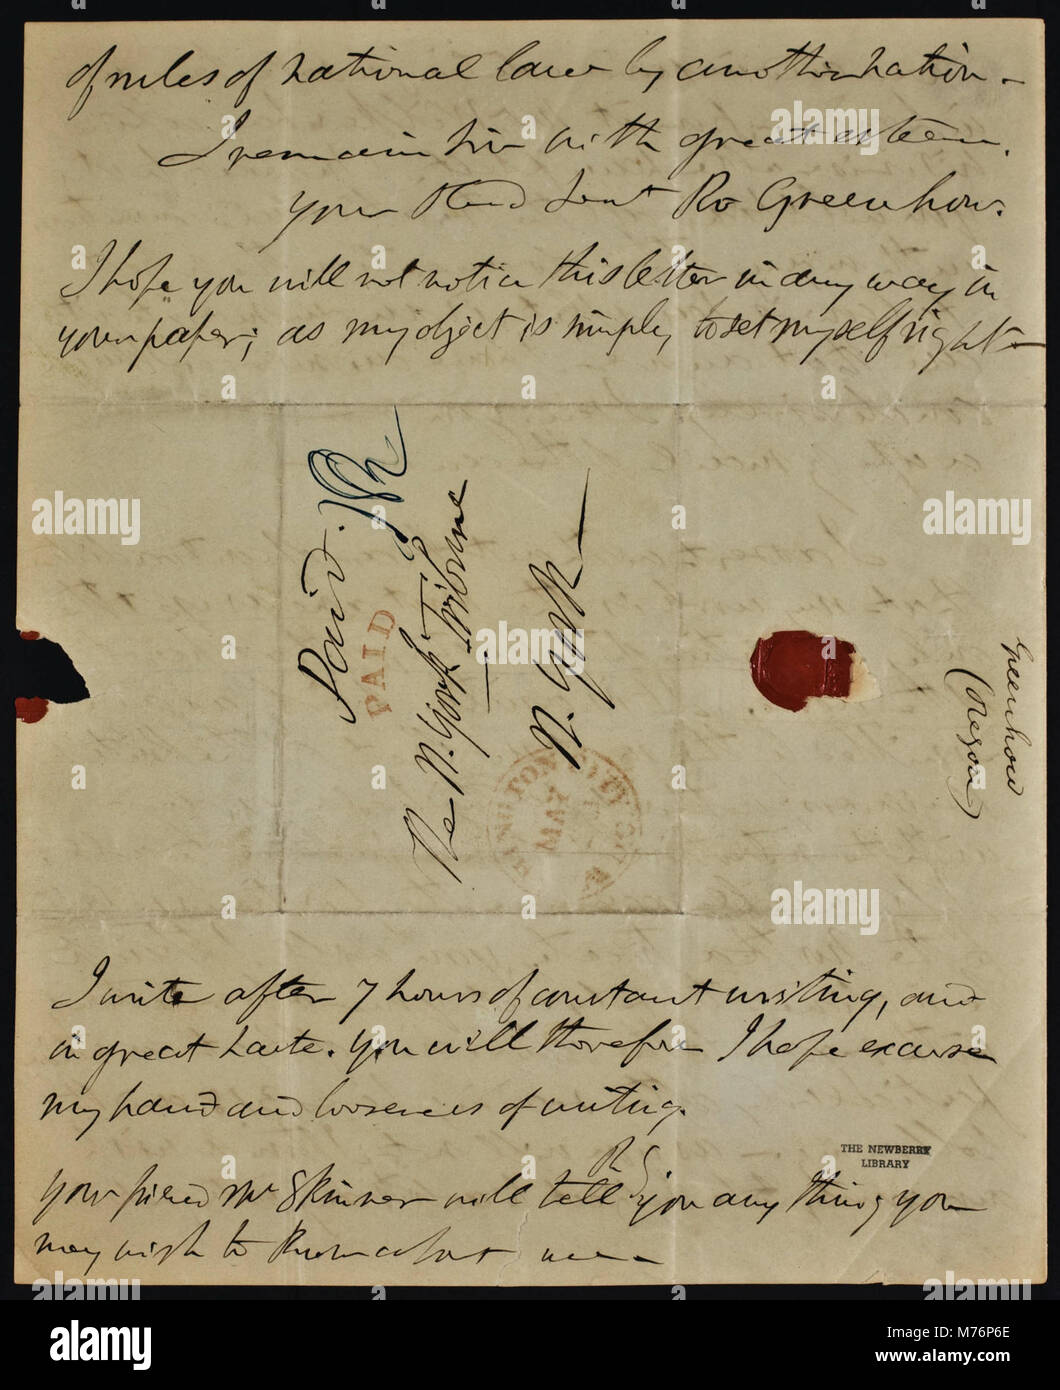 of rules of national law by another nation –
I remain Sir with great esteem.
your Obed Servt Ro Greenhow.
I hope you will not notice this letter in any way in
your paper; as my object is simply, to set myself right –
Paid.
PAID
The N. York Tribune
N. York
INGTON CITY
MAY
Greenhow
(Oregon)
I write after 7 hours of constant writing, and
in great haste. You will therefore I hope excuse
my hand and looseness of writing.
R G
your friend Mr Skinner will tell you any thing you
may wish to know about me –
THE NEWBERRY
LIBRARY
alamy
Image ID: M76P6E
www.alamy.com